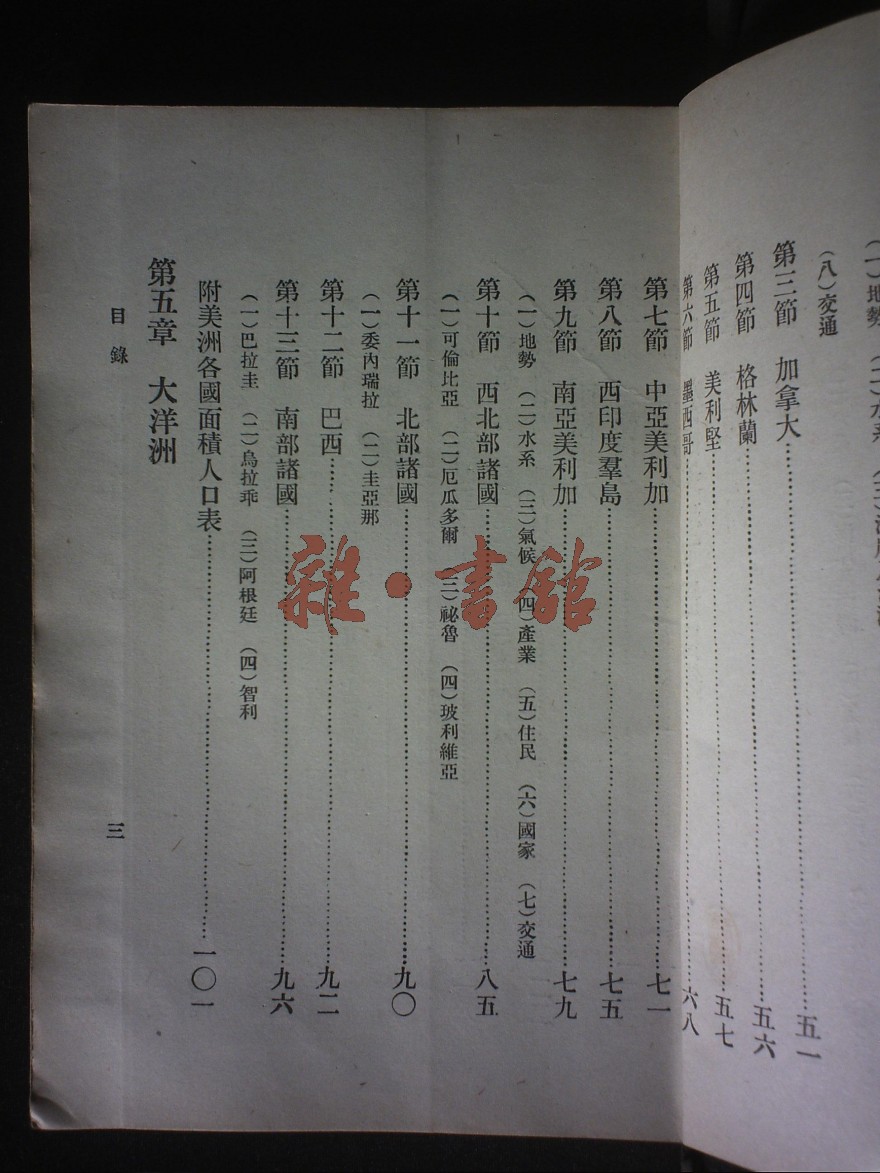 (八)交通
第三節 加拿大……五一
第四節 格林蘭……五六
第五節 美利堅……五七
第六節 墨西哥……六八
第七節 中亞美利加……七一
第八節 西印度羣島……七五
第九節 南亞美利加……七九
(一)地勢 (二)水系 (三)氣候 (四)產業 (五)住民 (六)國家 (七)交通
第十節 西北部諸國……八五
(一)可倫比亞 (二)厄瓜多爾 (三)祕魯 (四)玻利維亞
第十一節 北部諸國……九〇
(一)委內瑞拉 (二)圭亞那
第十二節 巴西……九二
第十三節 南部諸國……九六
(一)巴拉圭 (二)烏拉乖 (三)阿根廷 (四)智利
附美洲各國面積人口表……一〇一
第五章 大洋洲
目錄
三
雜·書館